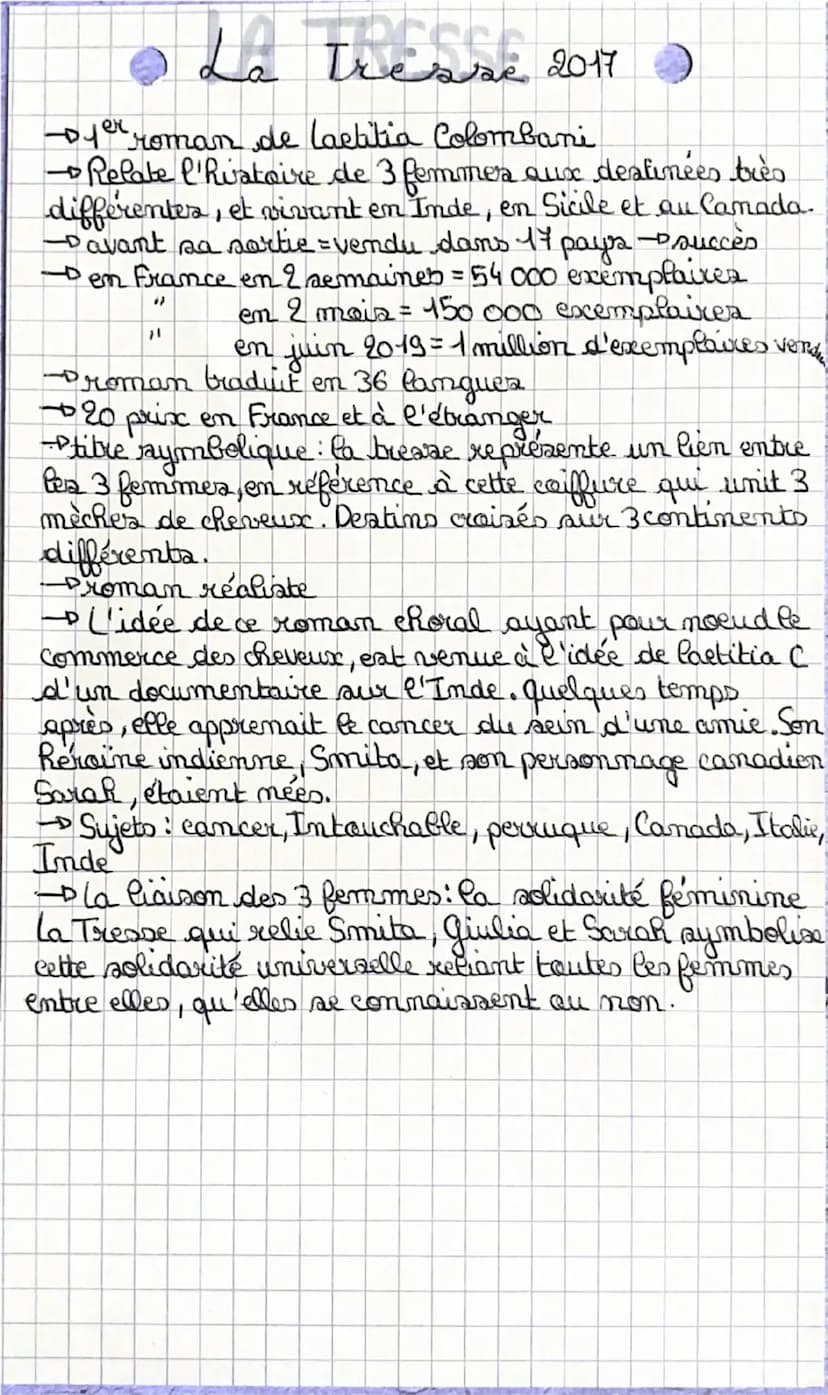 LA TRESSE
La Tresse 2017
→ 1er roman de Laetitia Colombani
→ Relate l'histoire de 3 femmes aux destinées très
différentes, et vivant en Inde, en Sicile et au Canada.
→ avant sa sortie = vendu dans 17 pays → succès
→ en France en 2 semaines = 54 000 exemplaires
" en 2 mois = 150 000 exemplaires
" en juin 2019 = 1 million d'exemplaires vendu
→ roman traduit en 36 langues
→ 20 prix en France et à l'étranger
→ titre symbolique : la tresse représente un lien entre
les 3 femmes, en référence à cette coiffure qui unit 3
mèches de cheveux. Destins croisés sur 3 continents
différents.
→ roman réaliste
→ L'idée de ce roman choral ayant pour noeud le
commerce des cheveux, est venue à l'idée de Laetitia C
d'un documentaire sur l'Inde. quelques temps
après, elle apprenait le cancer du sein d'une amie. Son
héroïne indienne, Smita, et son personnage canadien
Sarah, étaient nées.
→ Sujets : cancer, Intouchable, perruque, Canada, Italie,
Inde
→ La liaison des 3 femmes : la solidarité féminine
La Tresse qui relie Smita, Giulia et Sarah symbolise
cette solidarité universelle reliant toutes les femmes
entre elles, qu'elles se connaissent ou non.